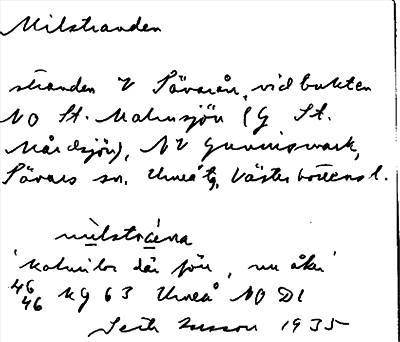 Milstranden
stranden V Sävarån, vid bukten
NO St. Malmsjön (G St.
Mårdsjön), NV Gunnismark,
Sävars sn. Umeå tg, Västerbottens l.
mìlstrańa
'kolmilor där förr, nu åker'
46 46 KG 63 Umeå NO D1
1935